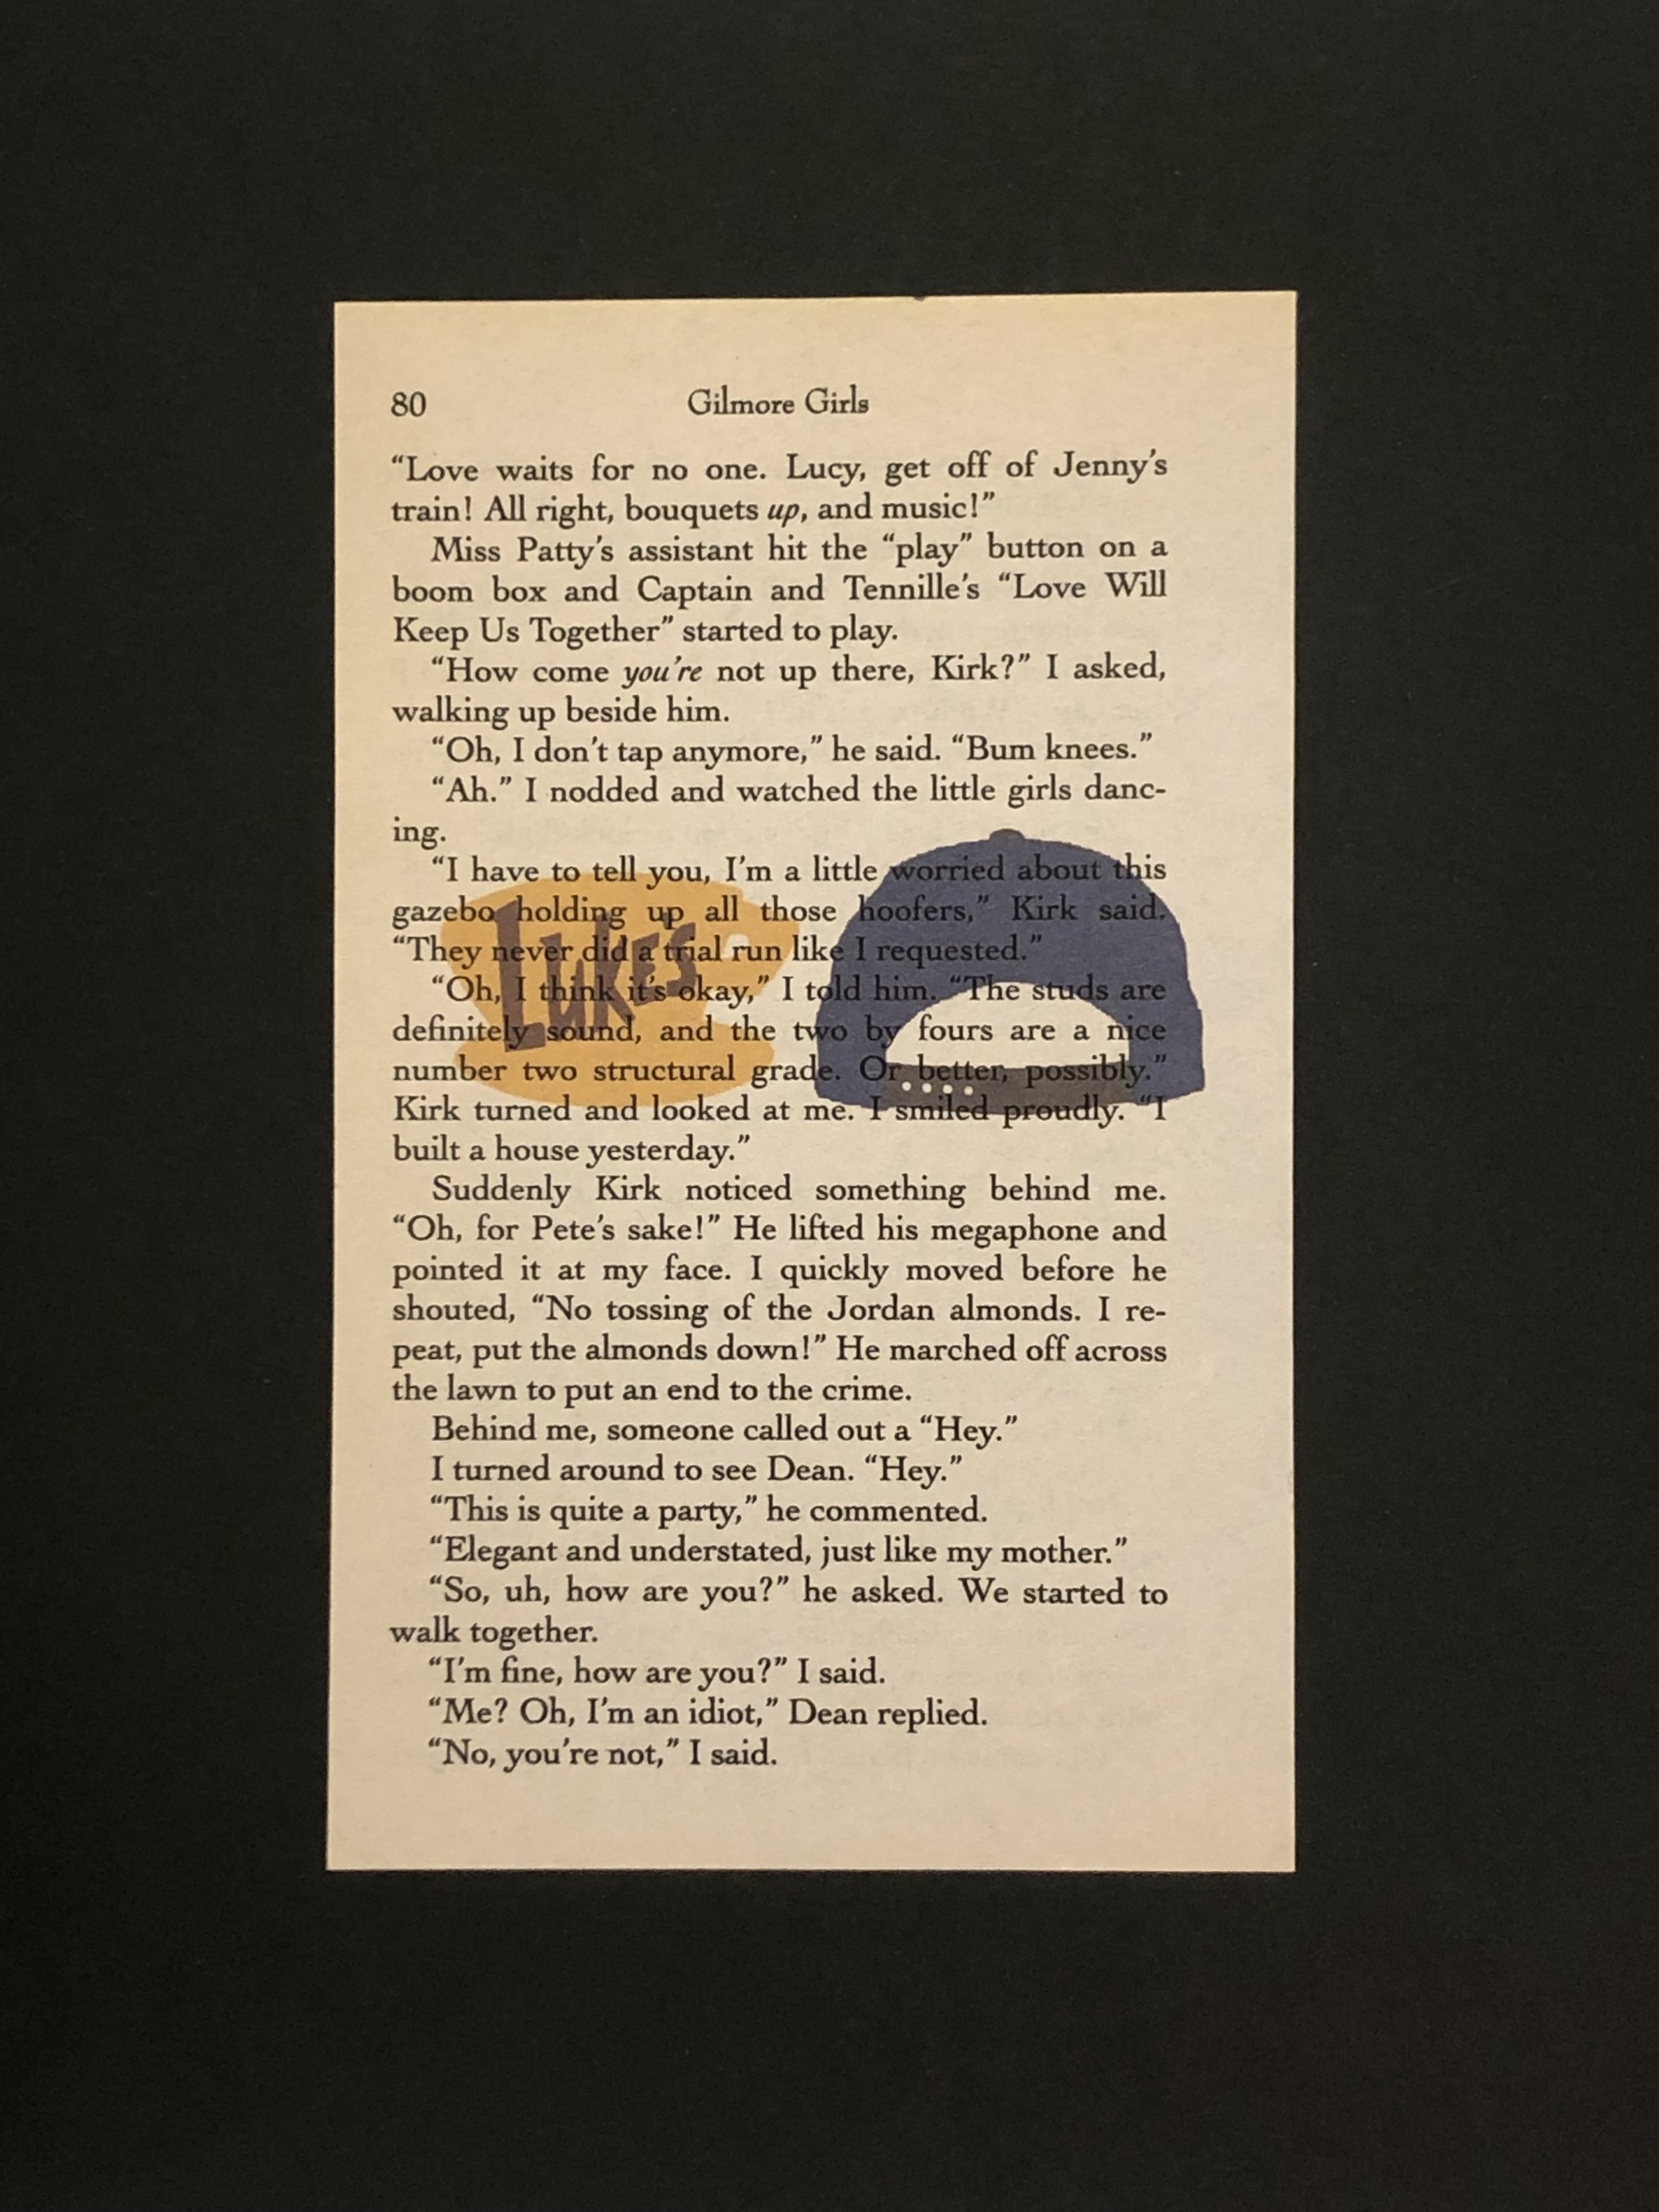 80 Gilmore Girls
“Love waits for no one. Lucy, get off of Jenny’s
train! All right, bouquets up, and music!”
Miss Patty’s assistant hit the “play” button on a
boom box and Captain and Tennille’s “Love Will
Keep Us Together” started to play.
“How come you’re not up there, Kirk?” I asked,
walking up beside him.
“Oh, I don’t tap anymore,” he said. “Bum knees.”
“Ah.” I nodded and watched the little girls danc-
ing.
“I have to tell you, I’m a little worried about this
gazebo holding up all those hoofers,” Kirk said.
“They never did a trial run like I requested.”
“Oh, I think it’s okay,” I told him. “The studs are
definitely sound, and the two by fours are a nice
number two structural grade. Or better, possibly.”
Kirk turned and looked at me. I smiled proudly. “I
built a house yesterday.”
Suddenly Kirk noticed something behind me.
“Oh, for Pete’s sake!” He lifted his megaphone and
pointed it at my face. I quickly moved before he
shouted, “No tossing of the Jordan almonds. I re-
peat, put the almonds down!” He marched off across
the lawn to put an end to the crime.
Behind me, someone called out a “Hey.”
I turned around to see Dean. “Hey.”
“This is quite a party,” he commented.
“Elegant and understated, just like my mother.”
“So, uh, how are you?” he asked. We started to
walk together.
“I’m fine, how are you?” I said.
“Me? Oh, I’m an idiot,” Dean replied.
“No, you’re not,” I said.
LUKES